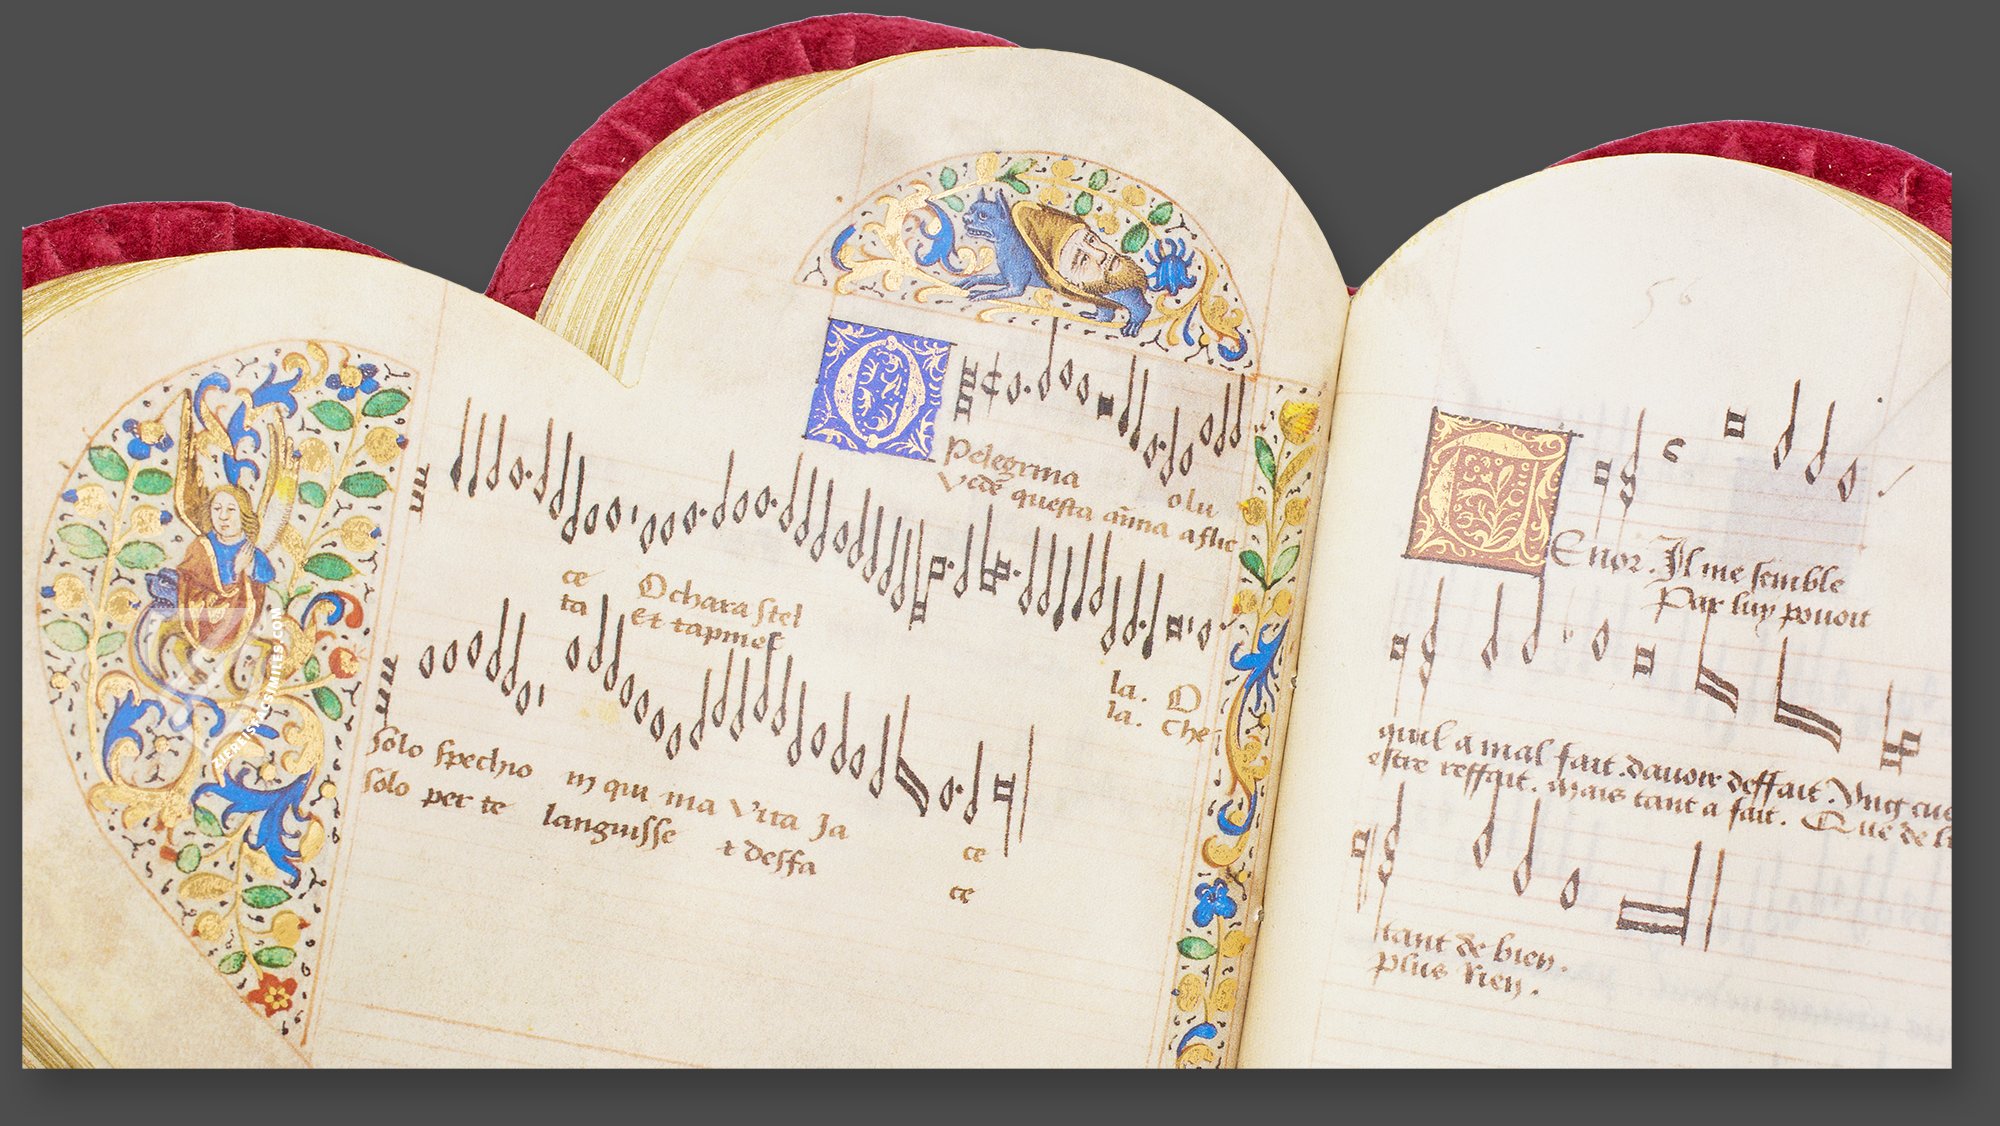 O
Pelegrina o lu
Vede questa anima aflic
ce O chara stel
ta Et tapinel
la. O
la. Che
Solo spechio in qui ma Vita Ja ce
Solo per te languisse & desfa ce
ZIEREISFACSIMILES.COM
50
T
Enor. Il me semble
Par luy pouoit
quil a mal fait. dauoir deffait. Vng
estre reffait. mais tant a fait. Que de
tant de bien.
Plus Rien.